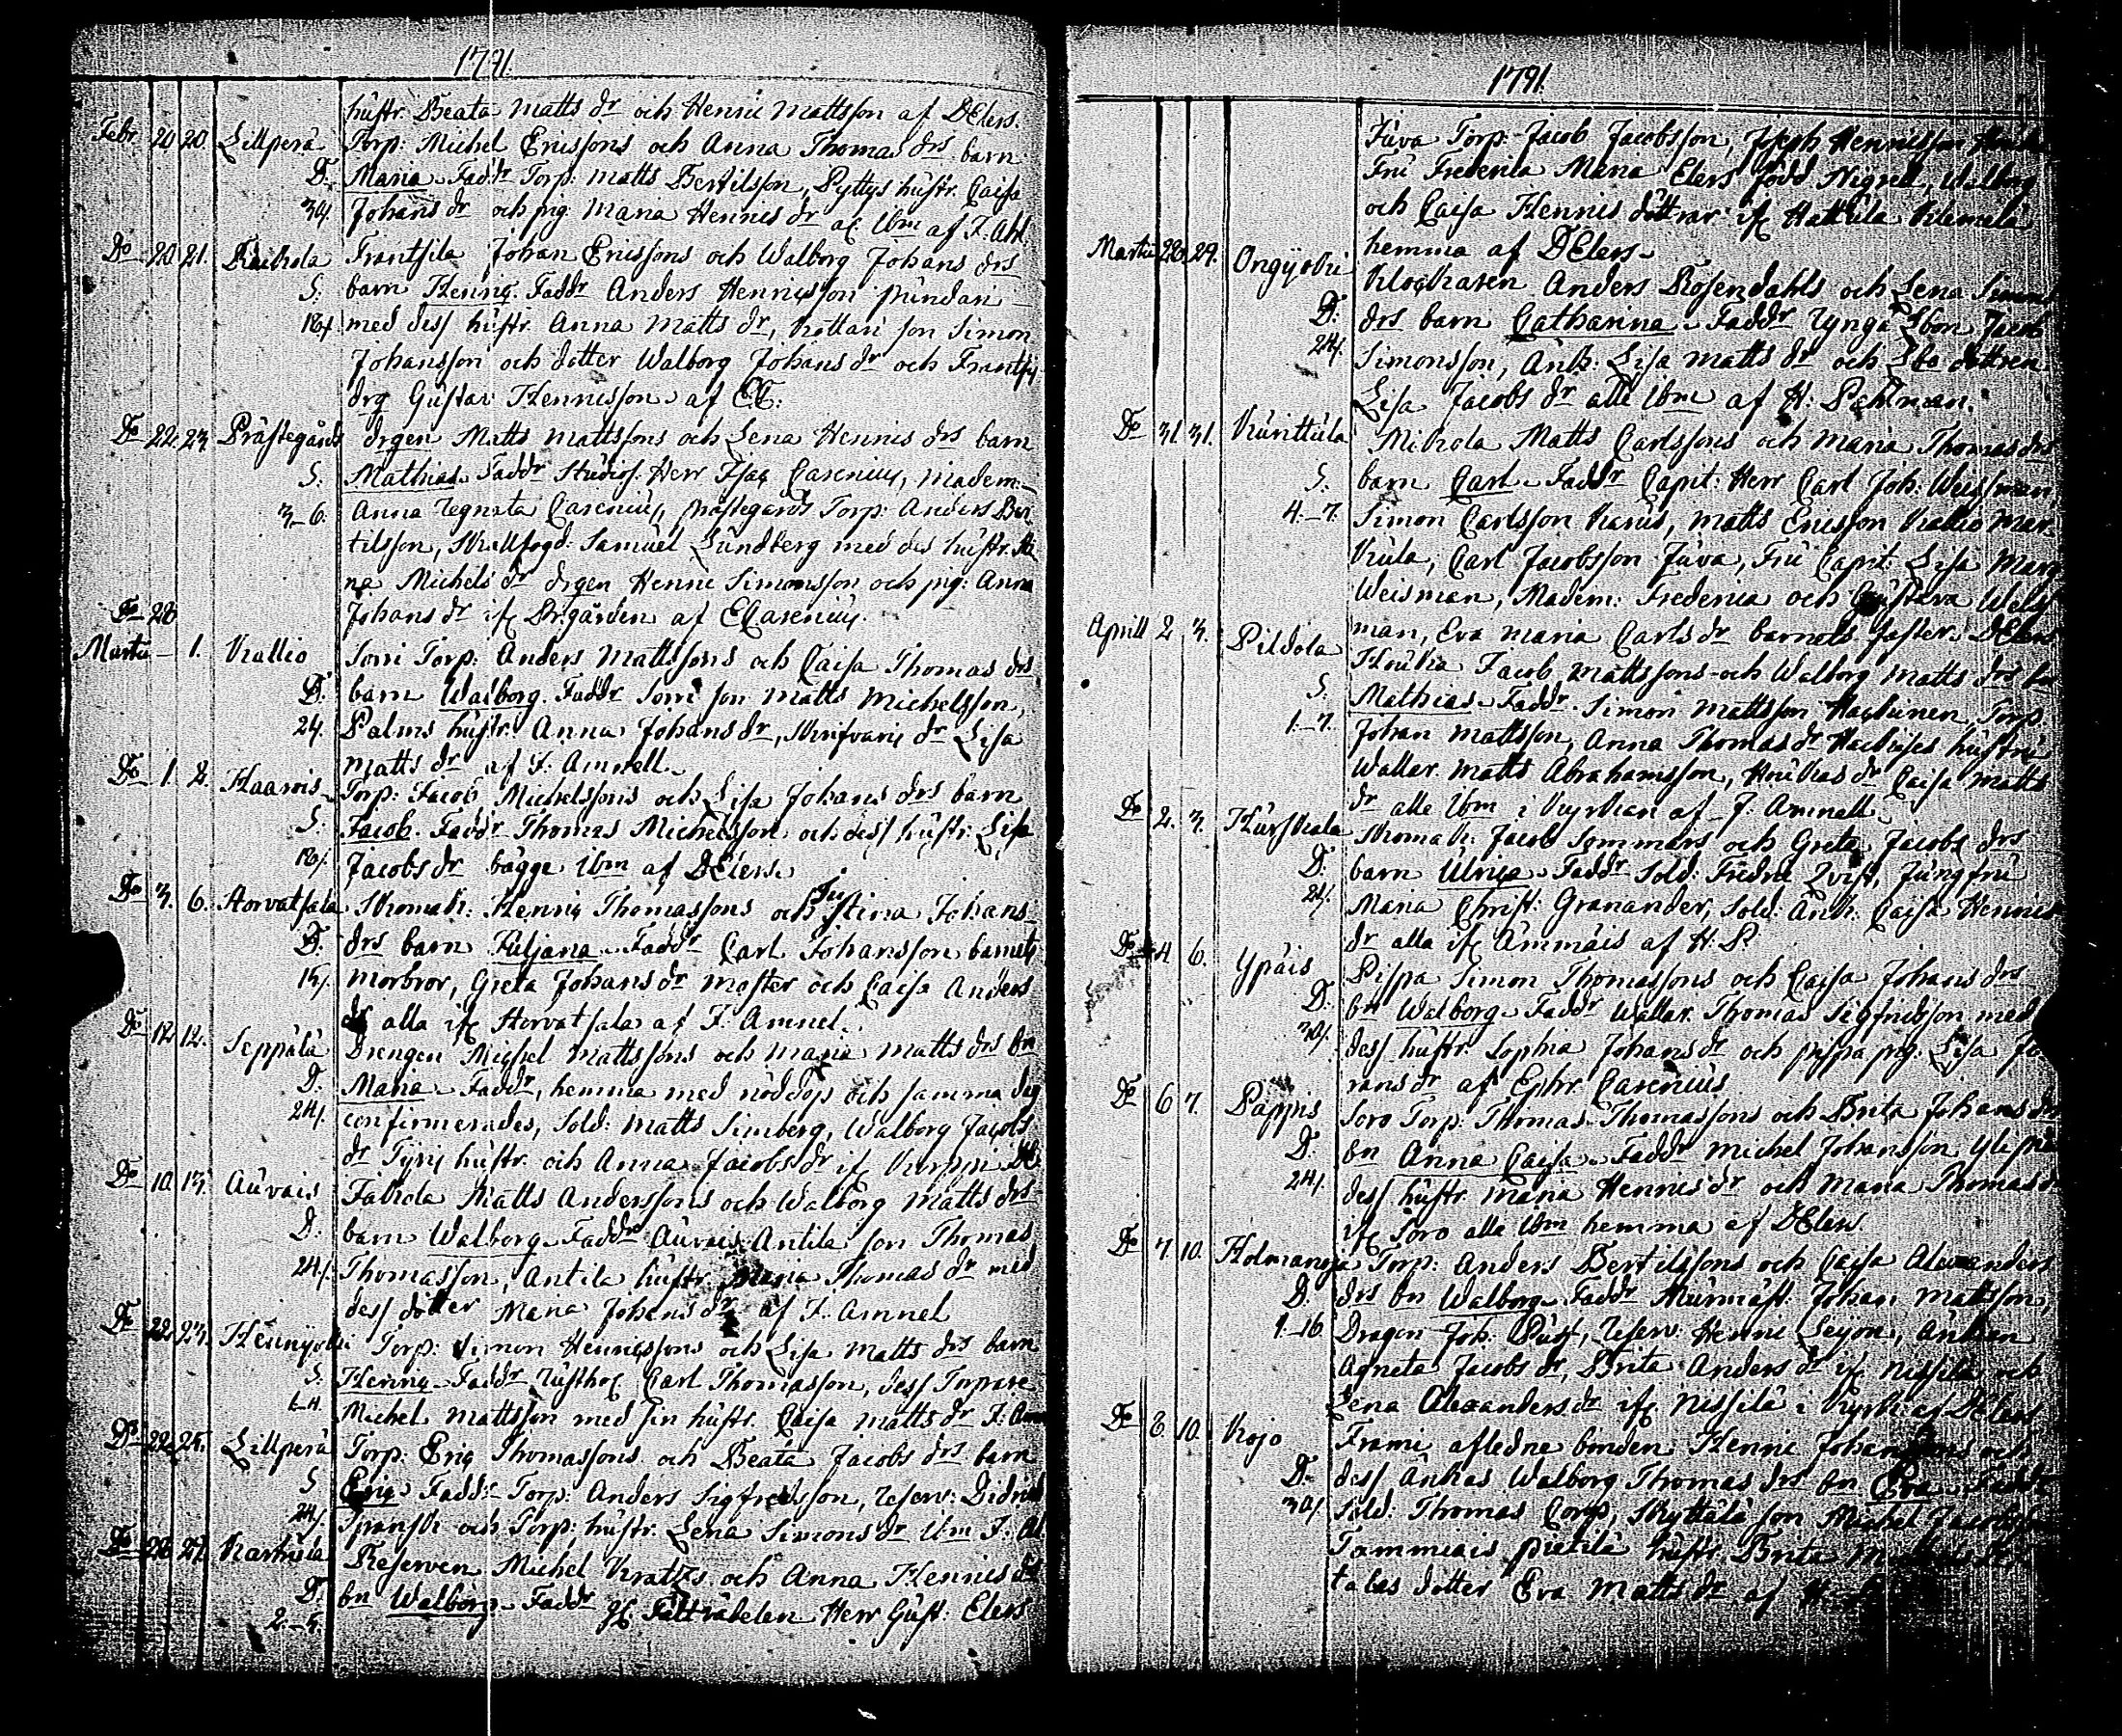 1791.
hustr. Beata Matts dr och Henric Mattsson af DElers.
Febr. 20 20. Lillperä Torp: Michel Ericssons och Anna Thomas drs barn
D. Maria. Faddr Torp: Matts Bertilsson, Pyttys hustr. Caisa
34/. Johans dr och pig: Maria Henrics dr af Ibm af
Do 20. 21. Frantsila Johan Ericssons och Walborg Johans drs
S: barn Henric. Faddr Anders Henricsson pundari
18/. med dess hustr. Anna Matts dr, Kottari son Simon
Johansson och dotter Walborg Johans dr och
drg Gustav Henricsson af
Do 22. 23. Prästegårds drgen Matts Mattssons och Lena Henrics drs barn
S. Mathias. Faddr Studios. Herr Isac Carenius, Madem:
3-6. Anna Regnata Carenius, prästegårds Torp: Anders Ber
tilsson, Samuel Sundberg med des hustr.
na Michels dr drgen Henric Simonsson och pig: Anna
Do 28 Johans dr ifr Pr:gården af ECarenius.
Martii - 1. Kallio Torp: Anders Mattssons och Caisa Thomas drs
D. barn Walborg. Faddr son Matts Michelsson,
24. Palms hustr. Anna Johans dr, dr Lisa
Matts dr af J. Amnell.
Do 1. 2. Haaros Torp: Jacob Michelssons och Lisa Johans drs barn
S. Jacob. Faddr Thomas Michelsson och dess hustr: Lisa
18/. Jacobs dr bägge ibm af DElers.
Do 3. 6. Horvatsala Skomak: Henric Thomassons och Justina Johans
D. drs barn Juljana. Faddr Carl Johansson barnets
15/. morbror, Greta Johans dr moster och Caisa Anders
dr alla ifr Horvatsala af J. Amnel.
Do 12 12. Seppälä Drengen Michel Mattssons och Maria Matts drs bn
D. Maria. Faddr, hemma med nöddop och samma dag
24/. confirmerades, Sold: Matts Simberg, Walborg Jacobs
dr hustr. och Anna Jacobs dr ifr
Do 10. 13. Auvais Matts Anderssons och Walborg Matts drs
D. barn Walborg. Faddr Auvais Antila son Thomas
24/. Thomasson, Antila hustr. Maria Thomas dr med
dess dotter Maria Johans dr af J. Amnel
Do 22. 23. Hennijoki Torp: Simon Henricssons och Lisa Matts drs barn
S. Henric. Faddr Rusth Carl Thomasson, dess Torpare
Michel Mattsson med sin hustr. Caisa Matts dr J. Am
Do 22. 25. Lillperä Torp: Eric Thomassons och Beata Jacobs drs barn
S Eric. Faddr Torp: Anders Sigfredsson, reserv: Didric
24/. och Torp: hustr. Lena Simons dr Ibm J.
Do 28 29. Karhula Reserven Michel Kratzs och Anna Henrics drs
D. bn Walborg. Faddr Herr Gust: Elers
2.-5.
1791.
Juva Torp: Jacob Jacobsson, Joseph Henricsson
Fru Frederica Maria Elers född Nigrell, Walborg
och Caisa Henrics döttrar ifr Hattula
hemma af DElers.
Martii 28. 29. Ongijoki Klockaren Anders Rosendahls och Lena Simons
D: drs barn Catharina. Faddr Jacob
24. Simonsson, Enk: Lisa Matts dr och
Lisa Jacobs dr alle Ibm af H: Pehlman.
Do 31. 31. Kurittula Mikola Matts Carlssons och Maria Thomas drs
S. barn Carl. Faddr Capit: Herr Carl Joh: Weisman
4.-7. Simon Carlsson, Matts Ericsson Kallio Mar
kula, Carl Jacobsson Juva, Fru Capit: Lisa Marg
Weisman, Madem: Frederica och Gustava Weis
Aprill 2 3. Pildola man, Eva Maria Carls dr barnets faster. DElers
Jacob Mattssons och Walborg Matts drs bn
S. Mathias. Faddr. Simon Mattsson, Torp:
1.-7. Johan Mattsson, Anna Thomas dr hustru
Wallar. Matts Abrahamsson, dr Caisa Matts
dr alle Ibm i Kyrkian af J. Amnell
Do 2. 3. Hurskala Skomak: Jacob Sommars och Greta Jacobs drs
D. barn Ulrica. Faddr Sold: Fredric Qvist, Jungfru
24/. Maria Christ: Granander, Sold: Enk: Caisa Henrics
dr alla ifr Ämmäis af H. P.
Do 4. 6. Ypäis Pispa Simon Thomassons och Caisa Johans drs
D. bn Walborg. Faddr Wallar. Thomas Sigfridsson med
30/. dess hustr. Sophia Johans dr och pispa pig: Lisa Jo
hans dr af Ephr. Carenius
Do 6 7. Pappis Soro Torp: Thomas Thomassons och Brita Johans drs
D. bn Anna Caisa. Faddr Michel Johansson
24/. dess hustr. Maria Henrics dr och Maria Thomas dr
ifr Soro alla Ibm hemma af DElers.
Do 7. 10. Holmanoja Torp: Anders Bertilssons och Caisa Alexanders
D. drs bn Walborg. Faddr Murmäst. Johan Mattsson,
1.-16 Dragon Joh: Reserv: Henric Leijon, Enkan
Agneta Jacobs dr, Brita Anders dr ifr Nissilä och
Lena Alexanders dr ifr Nissilä i Kyrk: af DElers
Do 8. 10. Kojo Frami afledne bonden Henric Johanssons och
D. dess Enkas Walborg Thomas drs bn Eva. Faddr
30/. Sold: Thomas Corp, Kyttälä son Michel Jacobsson
Tammiais hustr. Brita
dotter Eva Matts dr. af H.